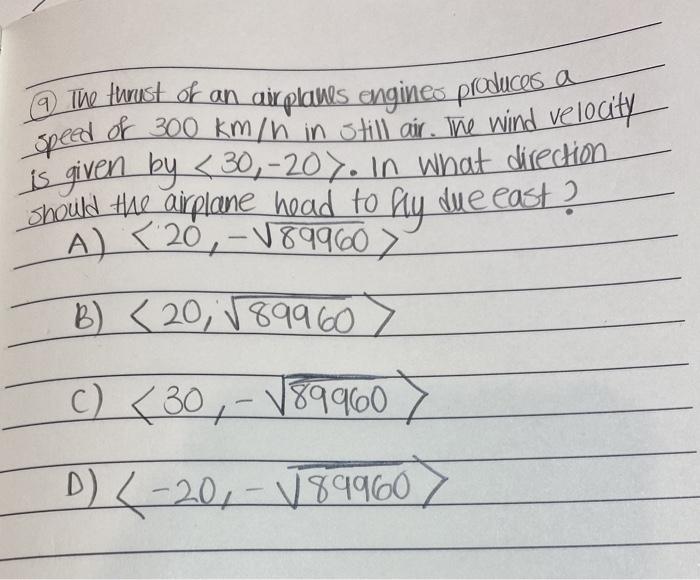 9 The thrust of an airplanes engines produces a
speed of 300 km/h in still air. The wind velocity
is given by <30,-20>. In what direction
should the airplane head to fly due east?
A) <20, -√89960>
B) <20, √89960>
C) <30, -√89960>
D) <-20, -√89960>